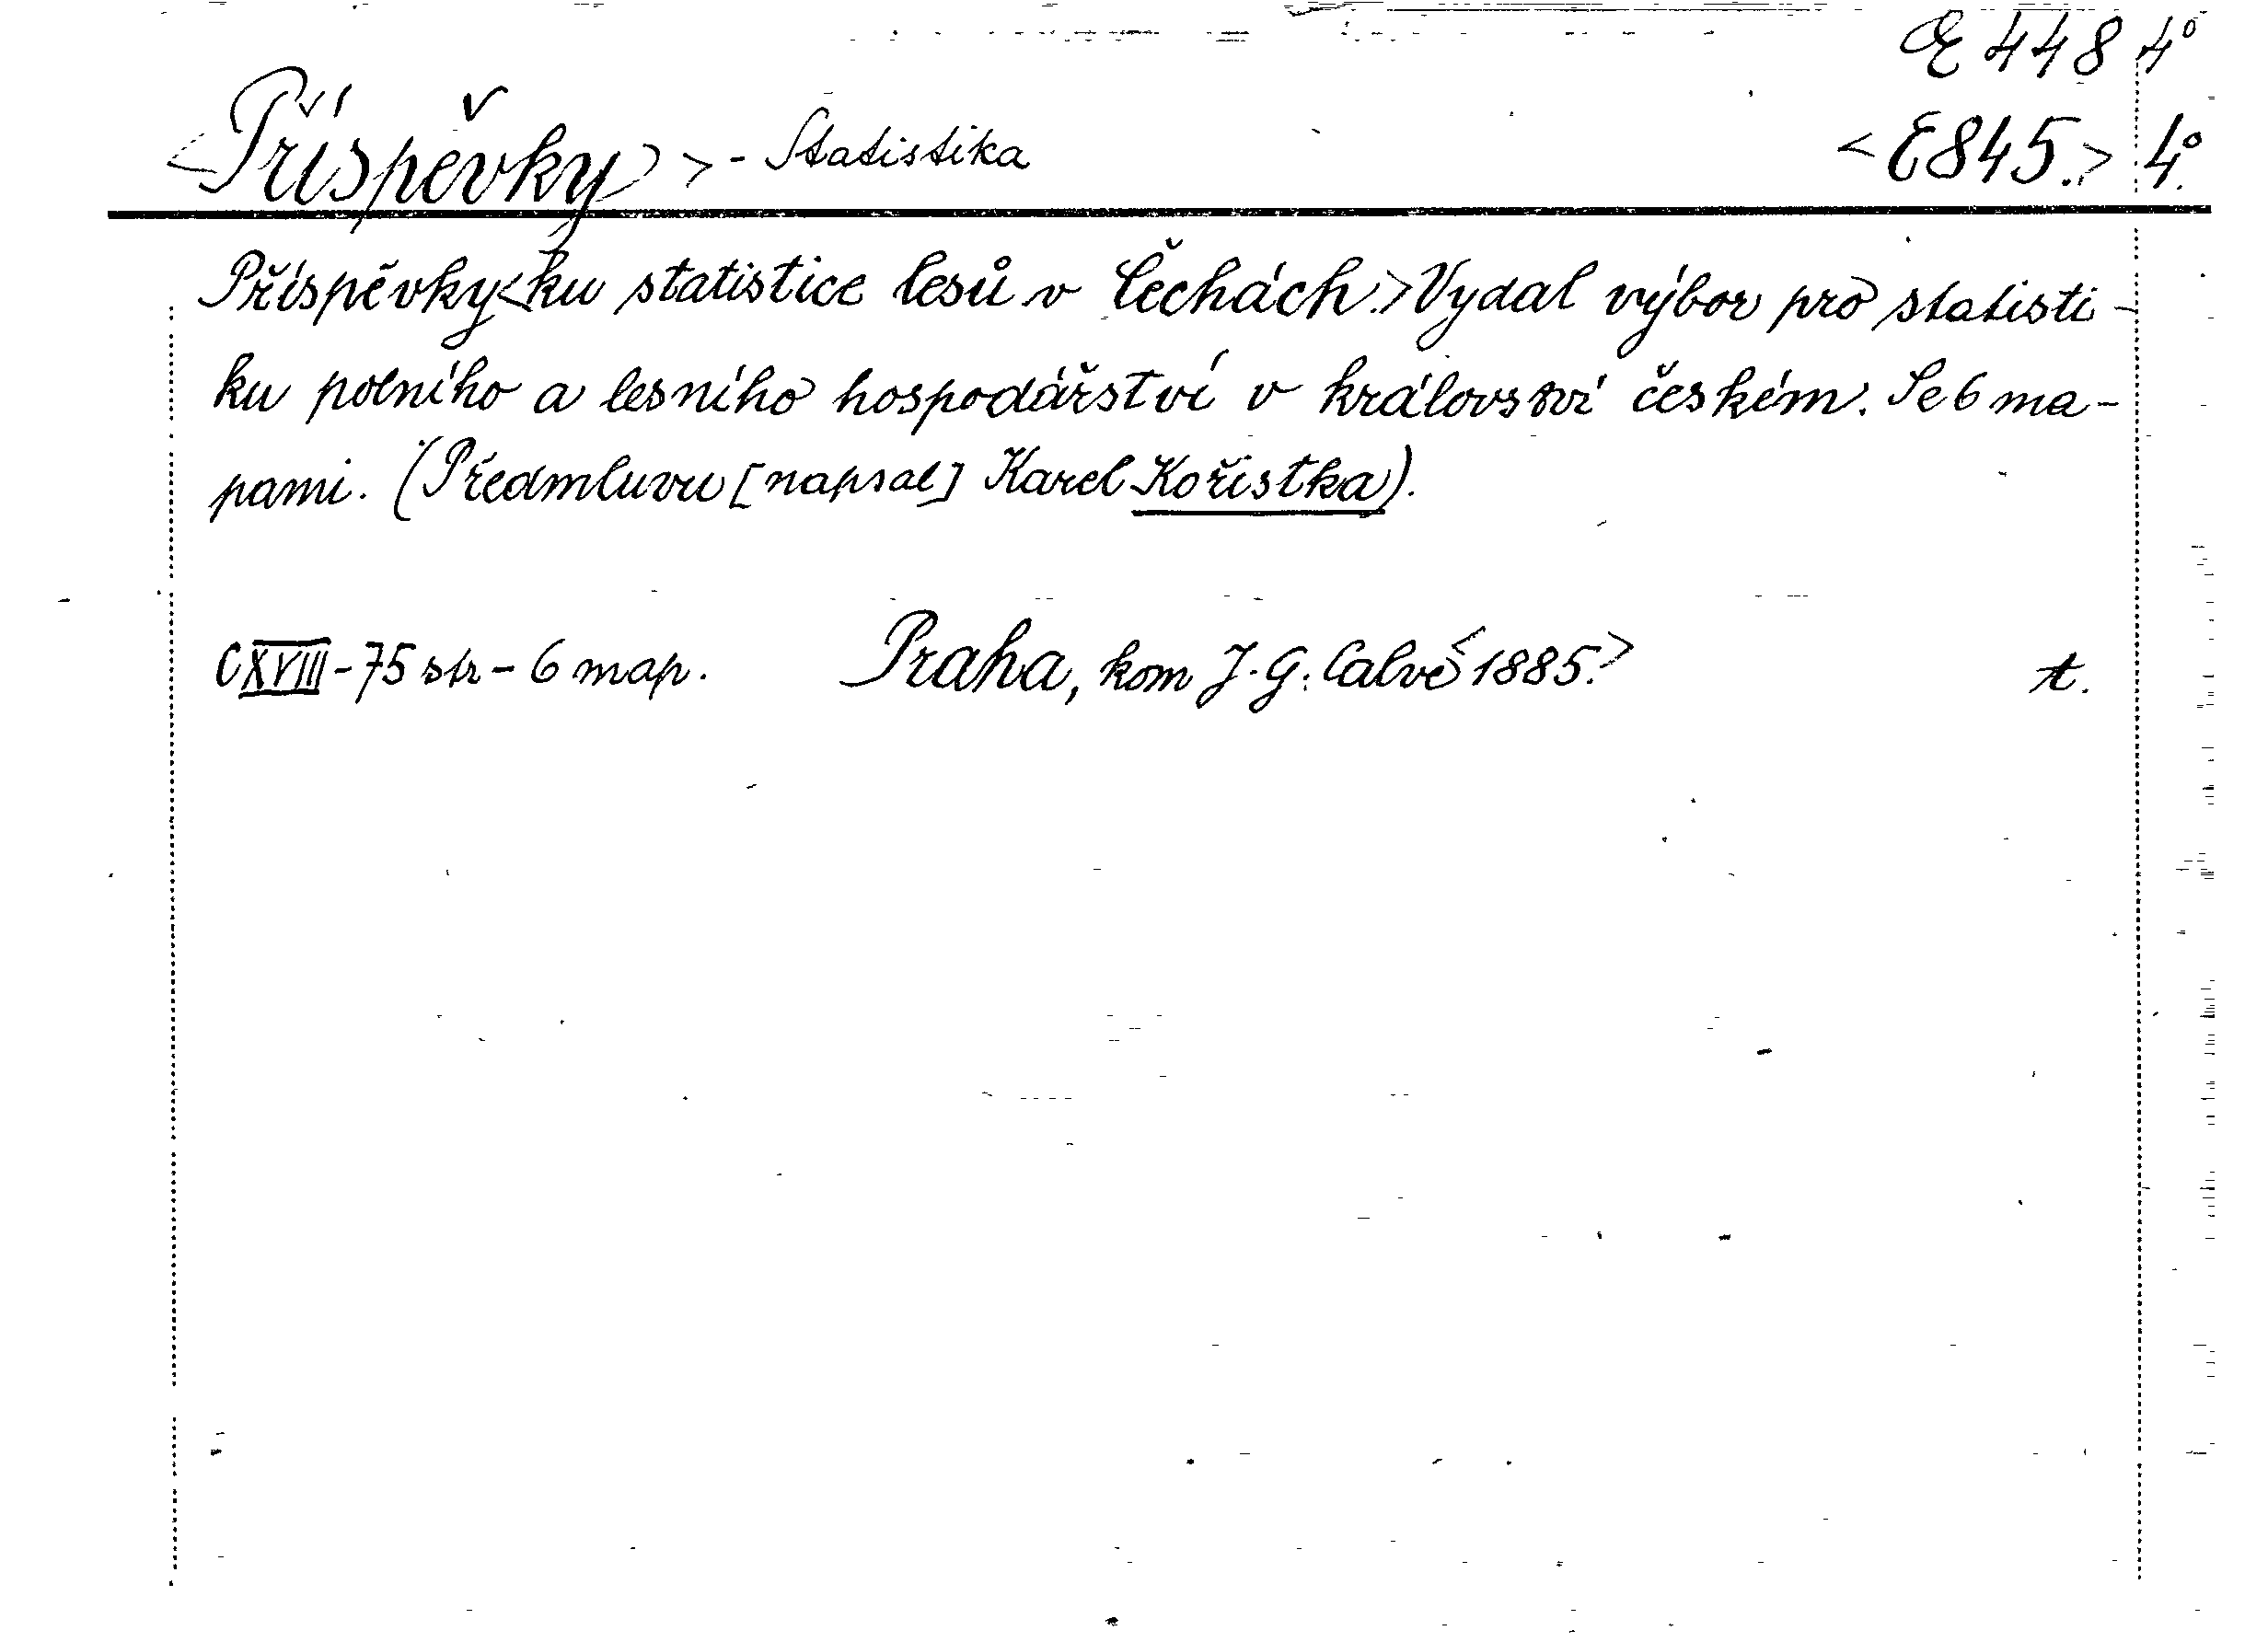 Œ 448 4°
<Příspěvky> - Statistika <E845.> 4°.
Příspěvky <ku statistice lesů v Čechách.> Vydal výbor pro statisti-
ku polního a lesního hospodářství v království českém. Se 6 ma-
pami. (Předmluvu [napsal] Karel Kořistka).
CXVIII - 75 str - 6 map. Praha, kom J. G. Calvé <1885.> t.